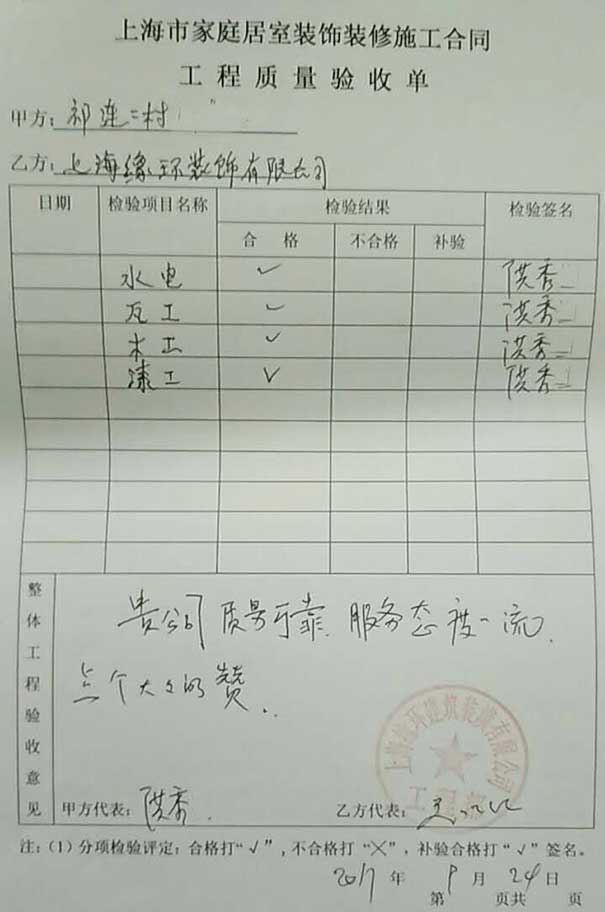 上海市家庭居室装饰装修施工合同
工程质量验收单
甲方：祁连二村
乙方：上海缘环装饰有限公司
日期 检验项目名称 检验结果 检验签名
合格 不合格 补验
水电 ✓ 洪秀
瓦工 ✓ 洪秀
木工 ✓ 洪秀
漆工 ✓ 洪秀
整体工程验收意见
贵公司质量可靠 服务态度一流.
点个大大的赞..
甲方代表：洪秀. 乙方代表：
注：（1）分项检验评定：合格打“√”，不合格打“╳”，补验合格打“√”签名。
2017年9月24日
第 页共 页